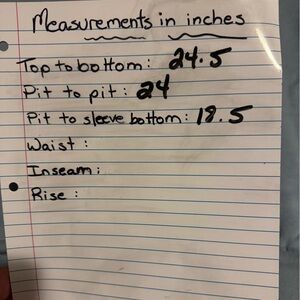 Measurements in inches
Top to bottom: 24.5
Pit to pit: 24
Pit to sleeve bottom: 18.5
Waist:
Inseam:
Rise: